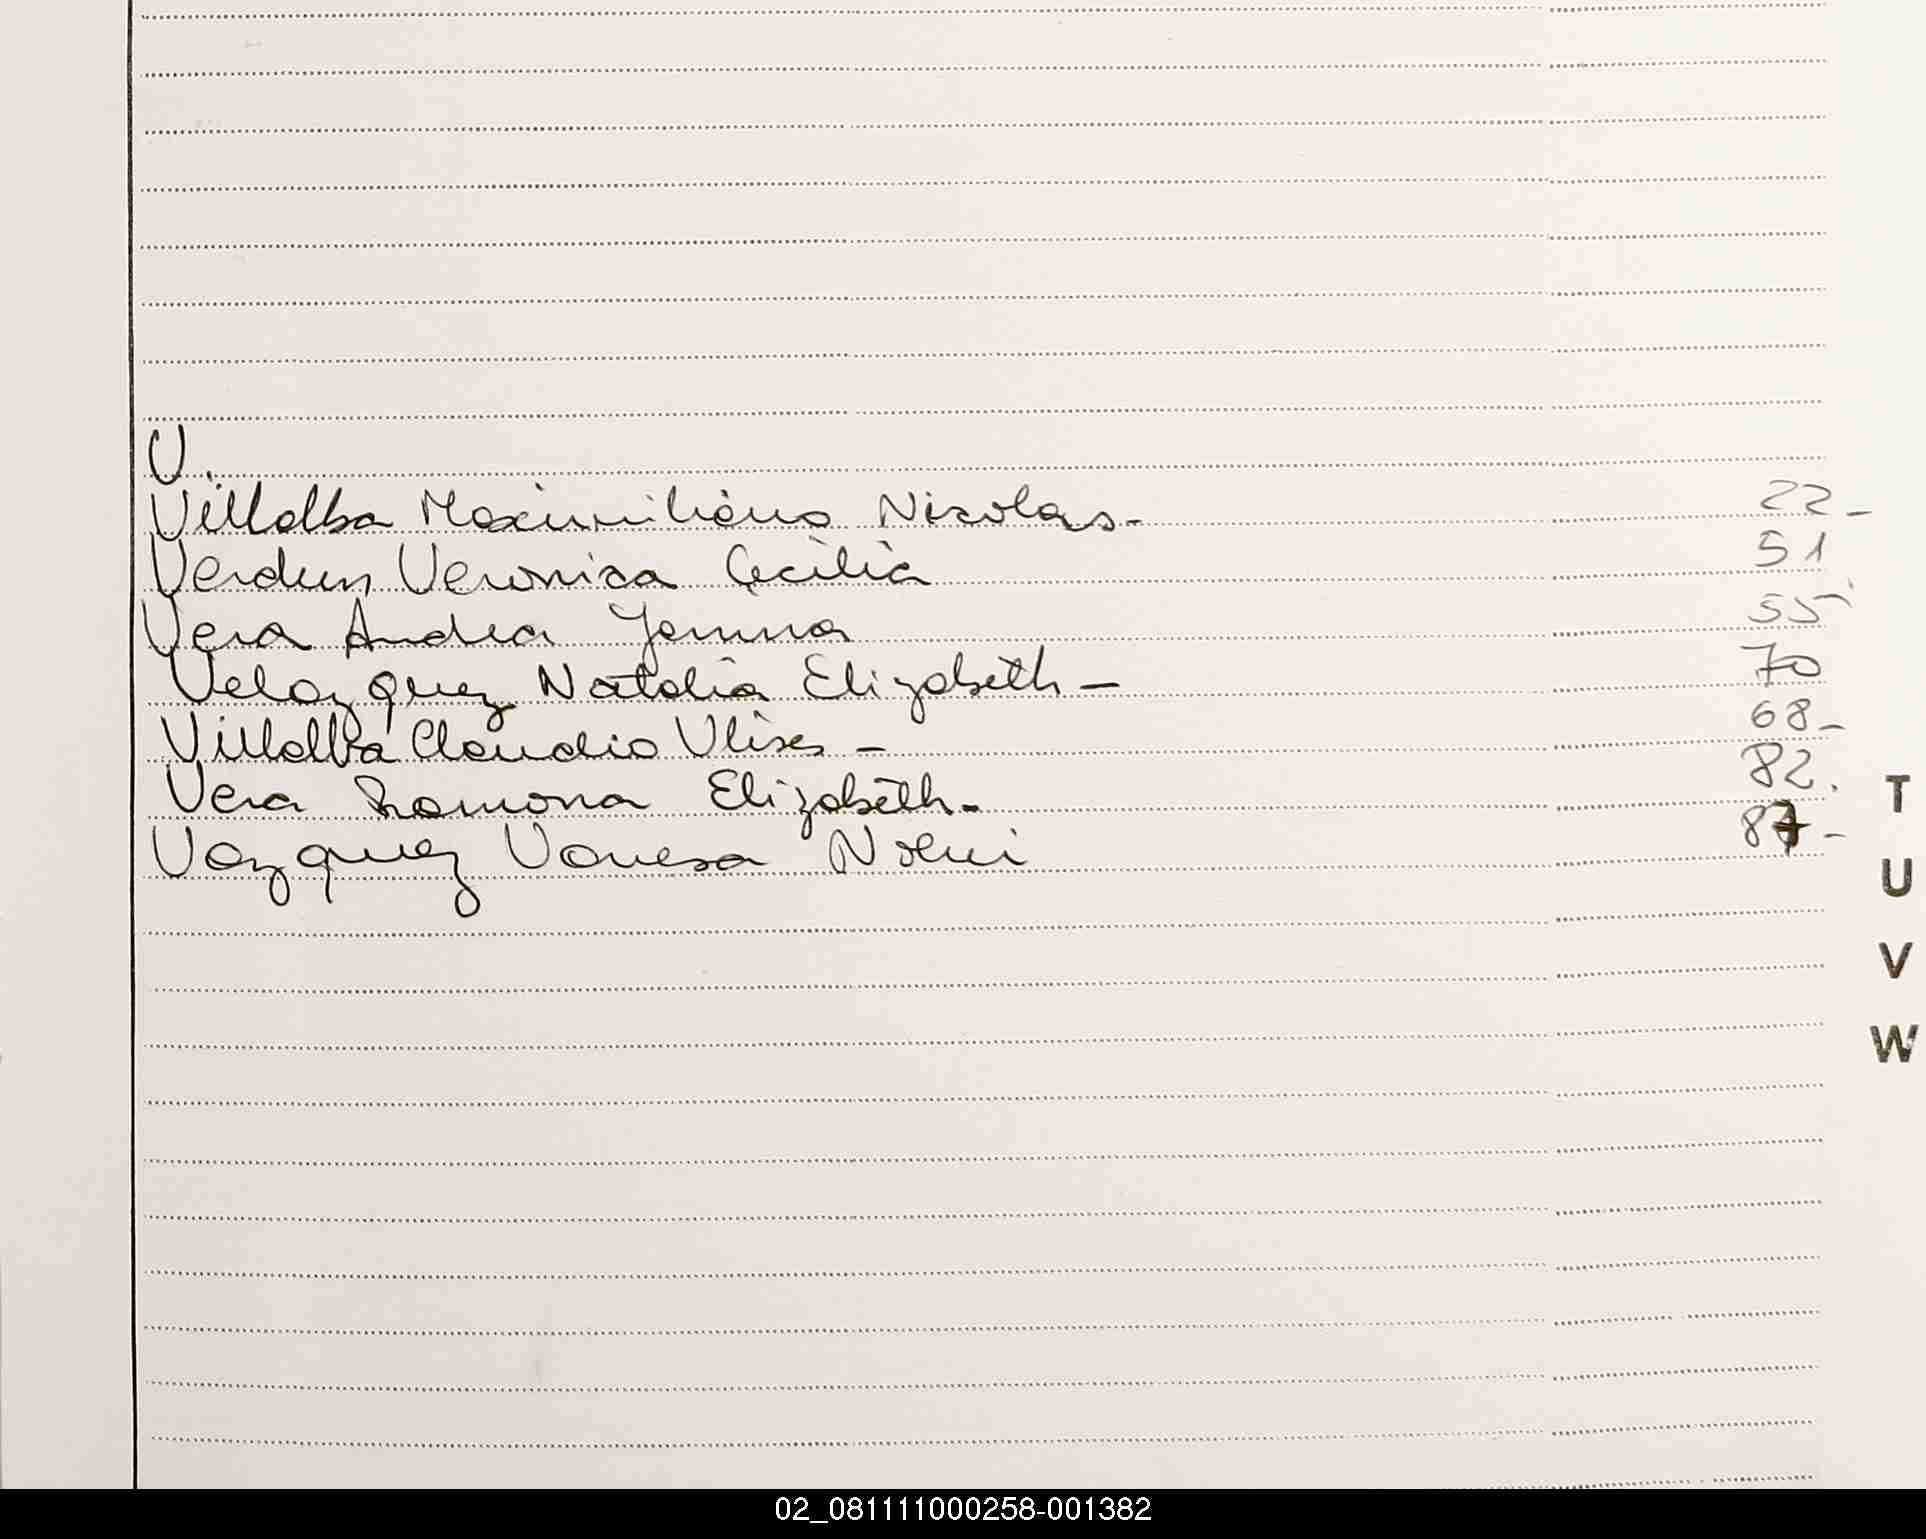 V.
Villalba Maximiliano Nicolas - 22 -
Verdun Veronica Cecilia 51
Vera Andrea Jemina 55
Velazquez Natalia Elizabeth - 70
Villalba Claudio Ulises - 68 -
Vera Ramona Elizabeth - 82.
Vazquez Vanesa Noemi 87 -
T
U
V
W
02_081111000258-001382